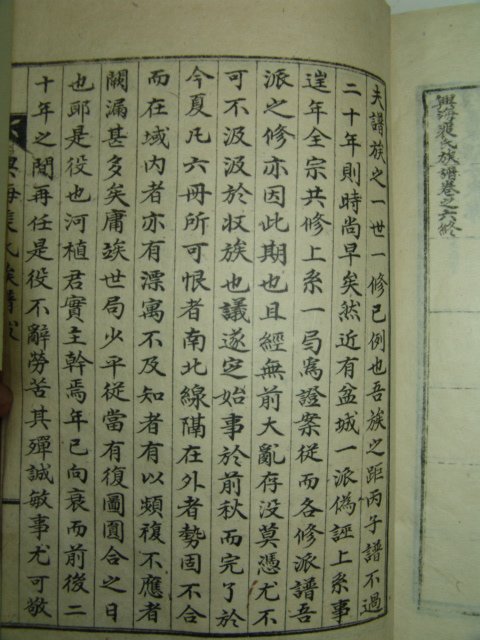 興海裵氏族譜卷之六終
夫譜族之一世一修已例也吾族之距丙子譜不過
二十年則時尚早矣然近有盆城一派僞誣上系事
逞年全宗共修上系一局寫證案從而各修派譜吾
派之修亦因此期也且經無前大亂存没莫憑尤不
可不汲汲於收族也議遂定始事於前秋而完了於
今夏凡六冊所可恨者南北線隔在外者勢固不合
而在域内者亦有漂寓不及知者有以頻複不應者
闕漏甚多矣庸竢世局少平從當有復圖圓合之日
也耶是役也河植君實主幹焉年已向衰而前後二
十年之間再任是役不辭勞苦其殫誠敏事尤可敬
興海裵氏族譜跋